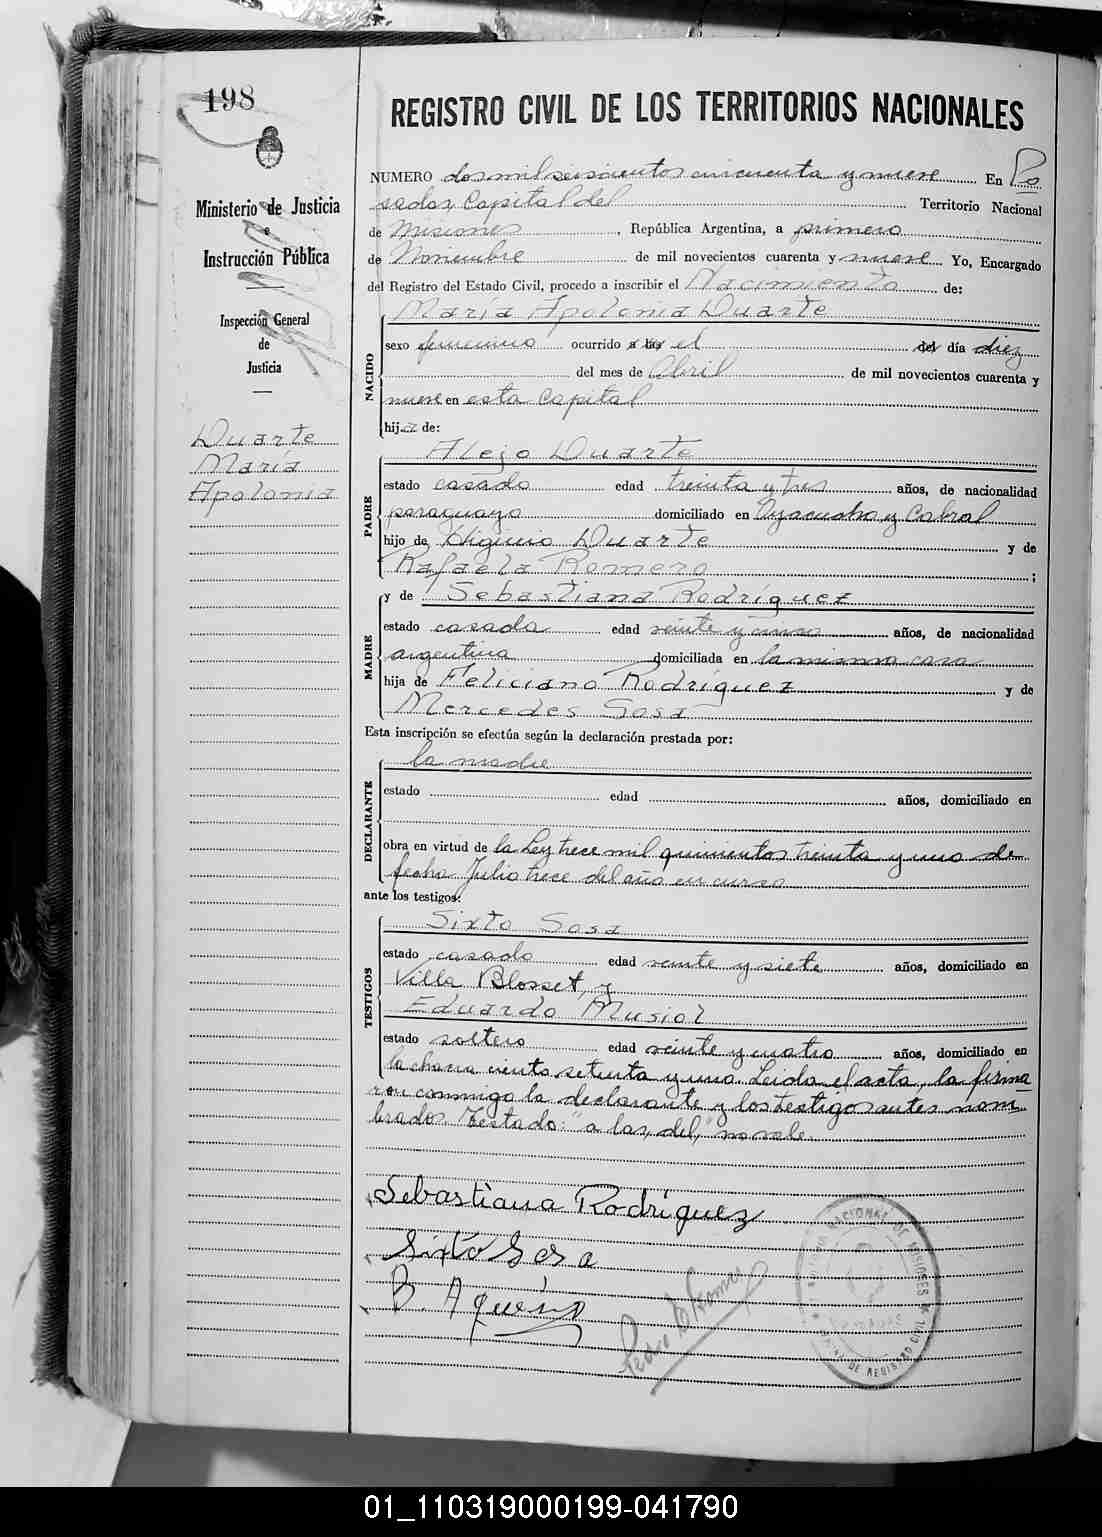 198
REGISTRO CIVIL DE LOS TERRITORIOS NACIONALES
Ministerio de Justicia
e
Instrucción Pública
Inspección General
de
Justicia
Duarte
María
Apolonia
NUMERO dos mil seiscientos cincuenta y nueve En Po
sadas, Capital del Territorio Nacional
de Misiones, República Argentina, a primero
de Noviembre de mil novecientos cuarenta y nueve Yo, Encargado
del Registro del Estado Civil, procedo a inscribir el Nacimiento de:
María Apolonia Duarte
NACIDO
sexo femenino ocurrido a las el del día diez
del mes de Abril de mil novecientos cuarenta y
nueve en esta Capital
hija de:
Alejo Duarte
PADRE
estado casado edad treinta y tres años, de nacionalidad
paraguayo domiciliado en Ayacucho y Cabral
hijo de Higinio Duarte y de
Rafaela Romero ;
y de Sebastiana Rodríguez
MADRE
estado casada edad veinte y cinco años, de nacionalidad
argentina domiciliada en la misma casa
hija de Feliciano Rodríguez y de
Mercedes Sosa
Esta inscripción se efectúa según la declaración prestada por:
la madre
DECLARANTE
estado edad años, domiciliado en
obra en virtud de la Ley trece mil quinientos treinta y uno de
fecha Julio trece del año en curso
ante los testigos:
Sixto Sosa
TESTIGOS
estado casado edad veinte y siete años, domiciliado en
Villa Blosset, y
Eduardo Musiol
estado soltero edad veinte y cuatro años, domiciliado en
la chacra ciento setenta y uno. Leida el acta, la firma
ron conmigo la declarante y los testigos antes nom
brados. Testado: "a las, del," no vale.
Sebastiana Rodríguez
Sixto Sosa
B. Aquino
01_110319000199-041790